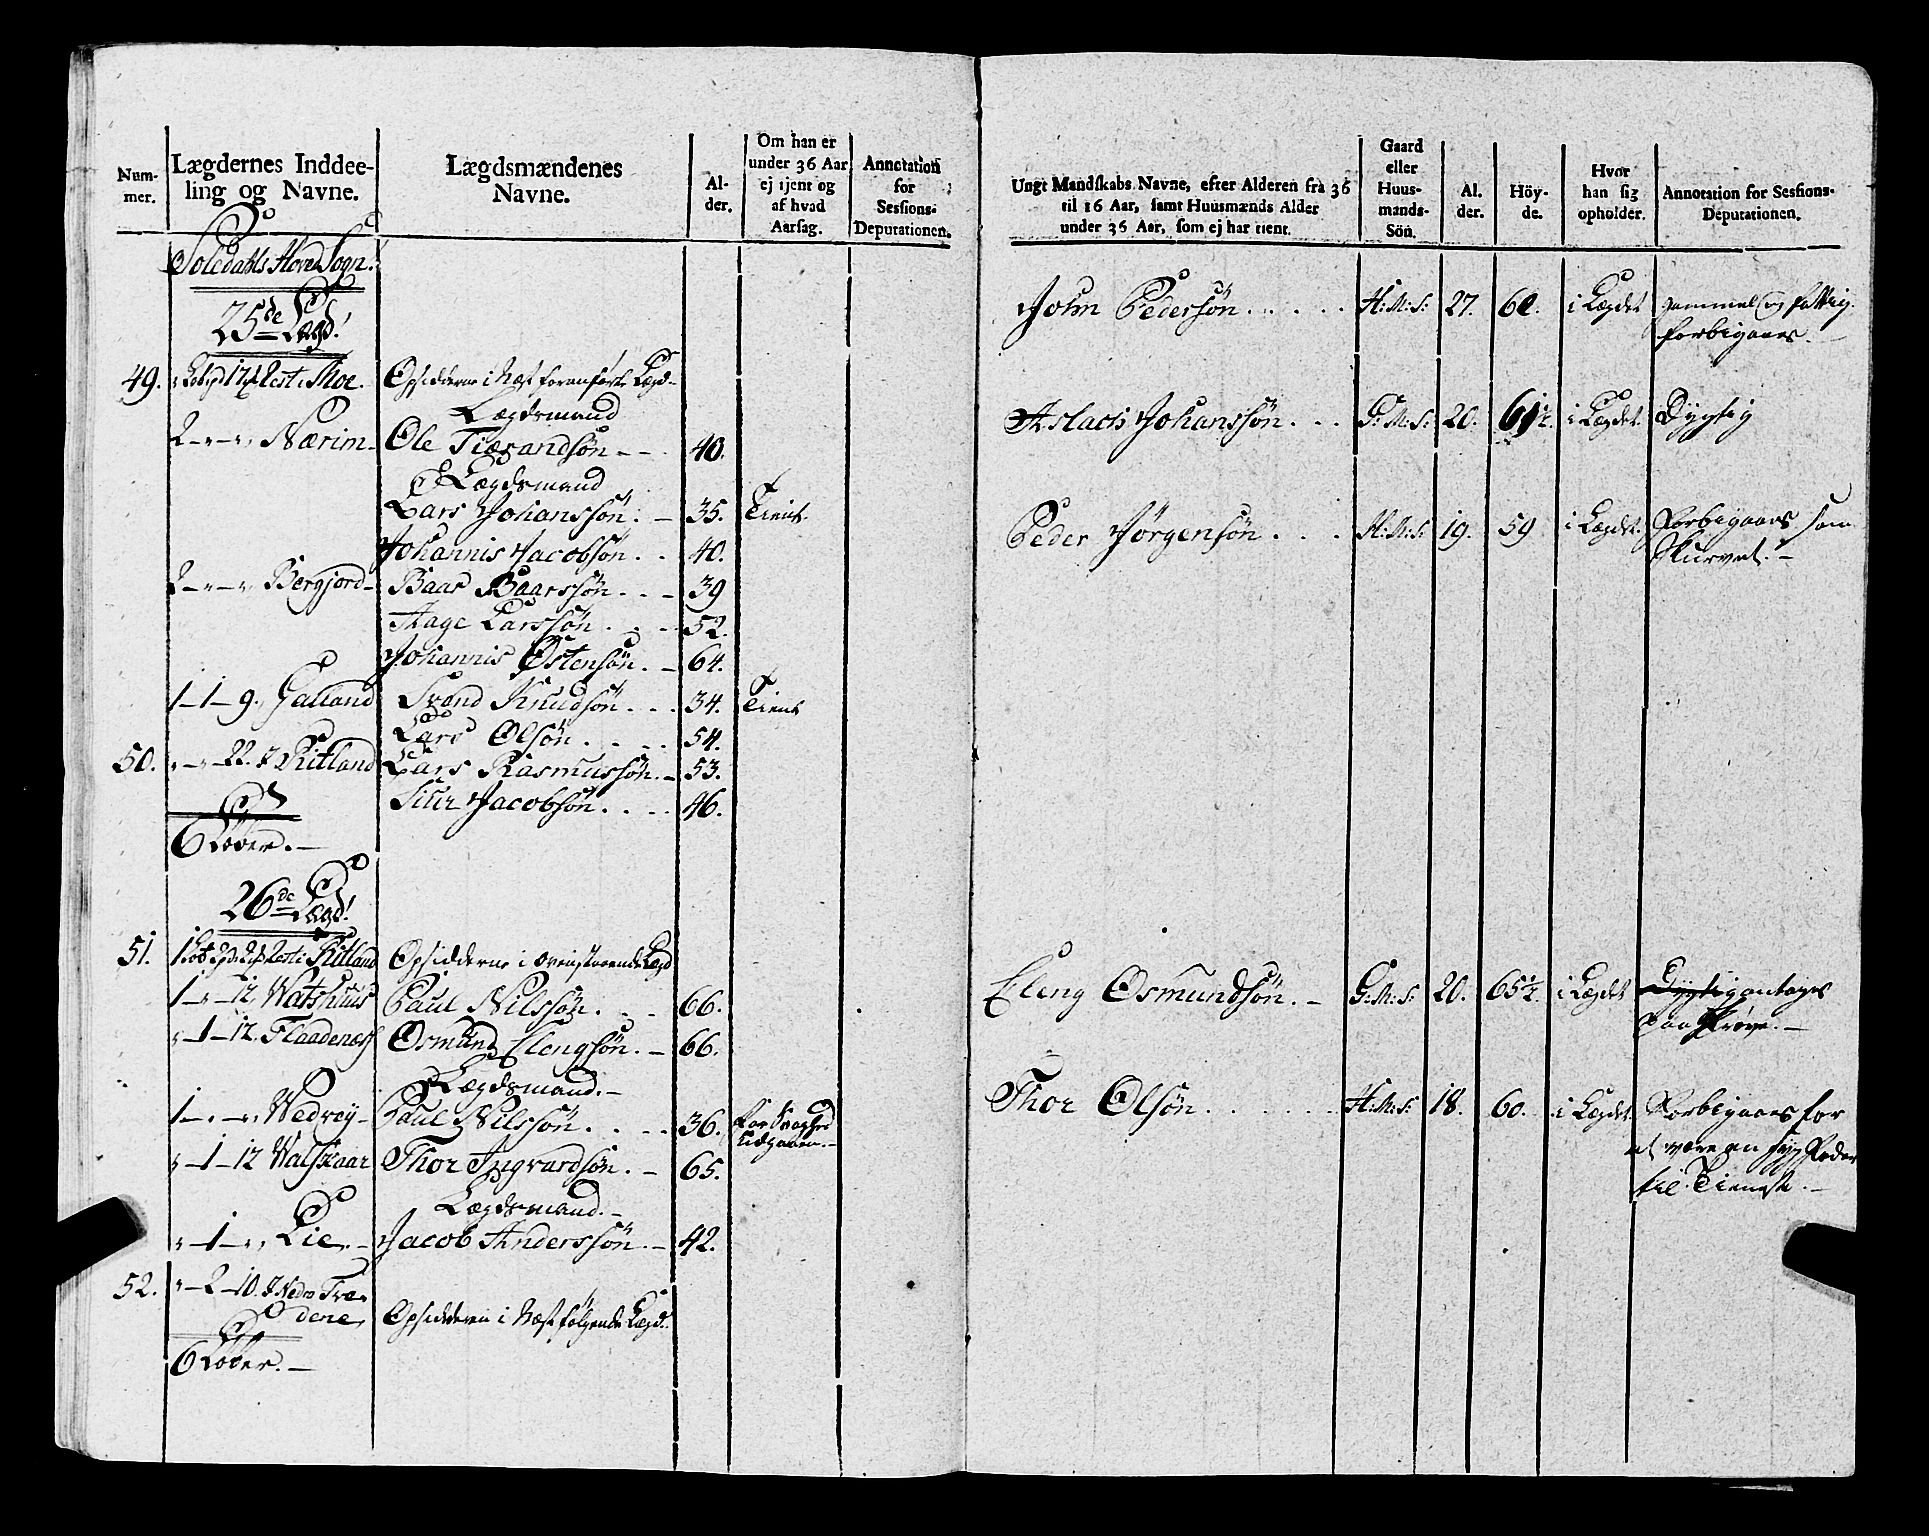 Num-
mer.
Lægdernes Inddee-
ling og Navne.
Lægdsmændenes
Navne.
Al-
der.
Om han er
under 36 Aar
ej tjent og
af hvad
Aarsag.
Annotation
for
Sessions-
Deputationen.
Soledahls Hoved Sogn.
25de Lægd.
49. Thoe. Opsidderne i Næst foranførte Lægd
Lægdsmand
2 Nærim Ole Tieerandsøn 40.
Lægdsmand
Lars Johanssøn. 35. Tient
Johannis Jacobsøn 40.
2 Bergjord Baar Baarssøn 39
Aage Larssøn 52.
Johannis Østensøn. 64.
1 1 9. Galland Svend Knudsøn 34. Tient
Lars Olsøn 54.
50. 22. Ritland Lars Rasmussøn. 53.
Siur Jacobsøn. 46.
6 Løber.
26de Lægd.
51. Ritland Opsidderne i ovenstaaende Lægd
1 12. Watshuus Paul Nilssøn 66.
1 12. Flaadenæs Osmund Elengsøn. 66.
Lægdsmand.
1 Wedvey Paul Nilssøn 36. For Svaghed
Udgaaen.
1 12 Walskaar Thor Ingvardsøn. 65.
Lægdsmand.
1 Lie Jacob Anderssøn 42.
52. 2 10. Nedre Træ-
dene Opsidderen i Næstfølgende Lægd.
6 Løber.
Ungt Mandskabs Navne, efter Alderen fra 36
til 16 Aar, samt Huusmænds Alder
under 36 Aar, som ej har tient.
Gaard
eller
Huus-
mands-
Sön.
Al.
der.
Höy-
de.
Hvor
han sig
opholder.
Annotation for Sessions-
Deputationen.
John Pedersøn H:M:S: 27. i Lægdet gammel og fattig
forbigaaes.
Aslach Johanssøn G:M:S: 20. 61½. i Lægdet Dygtig
Peder Jørgensøn H:M:S: 19. 59 i Lægdet Forbigaaes som
Skurvet.
Eleng Osmundsøn. G:M:S: 20. 65½. i Lægdet Dygtig antages
paa Prøve.
Thor Olsøn H:M:S: 18. 60. i Lægdet Forbigaaes for
at være en syg Fader
til Tieneste.